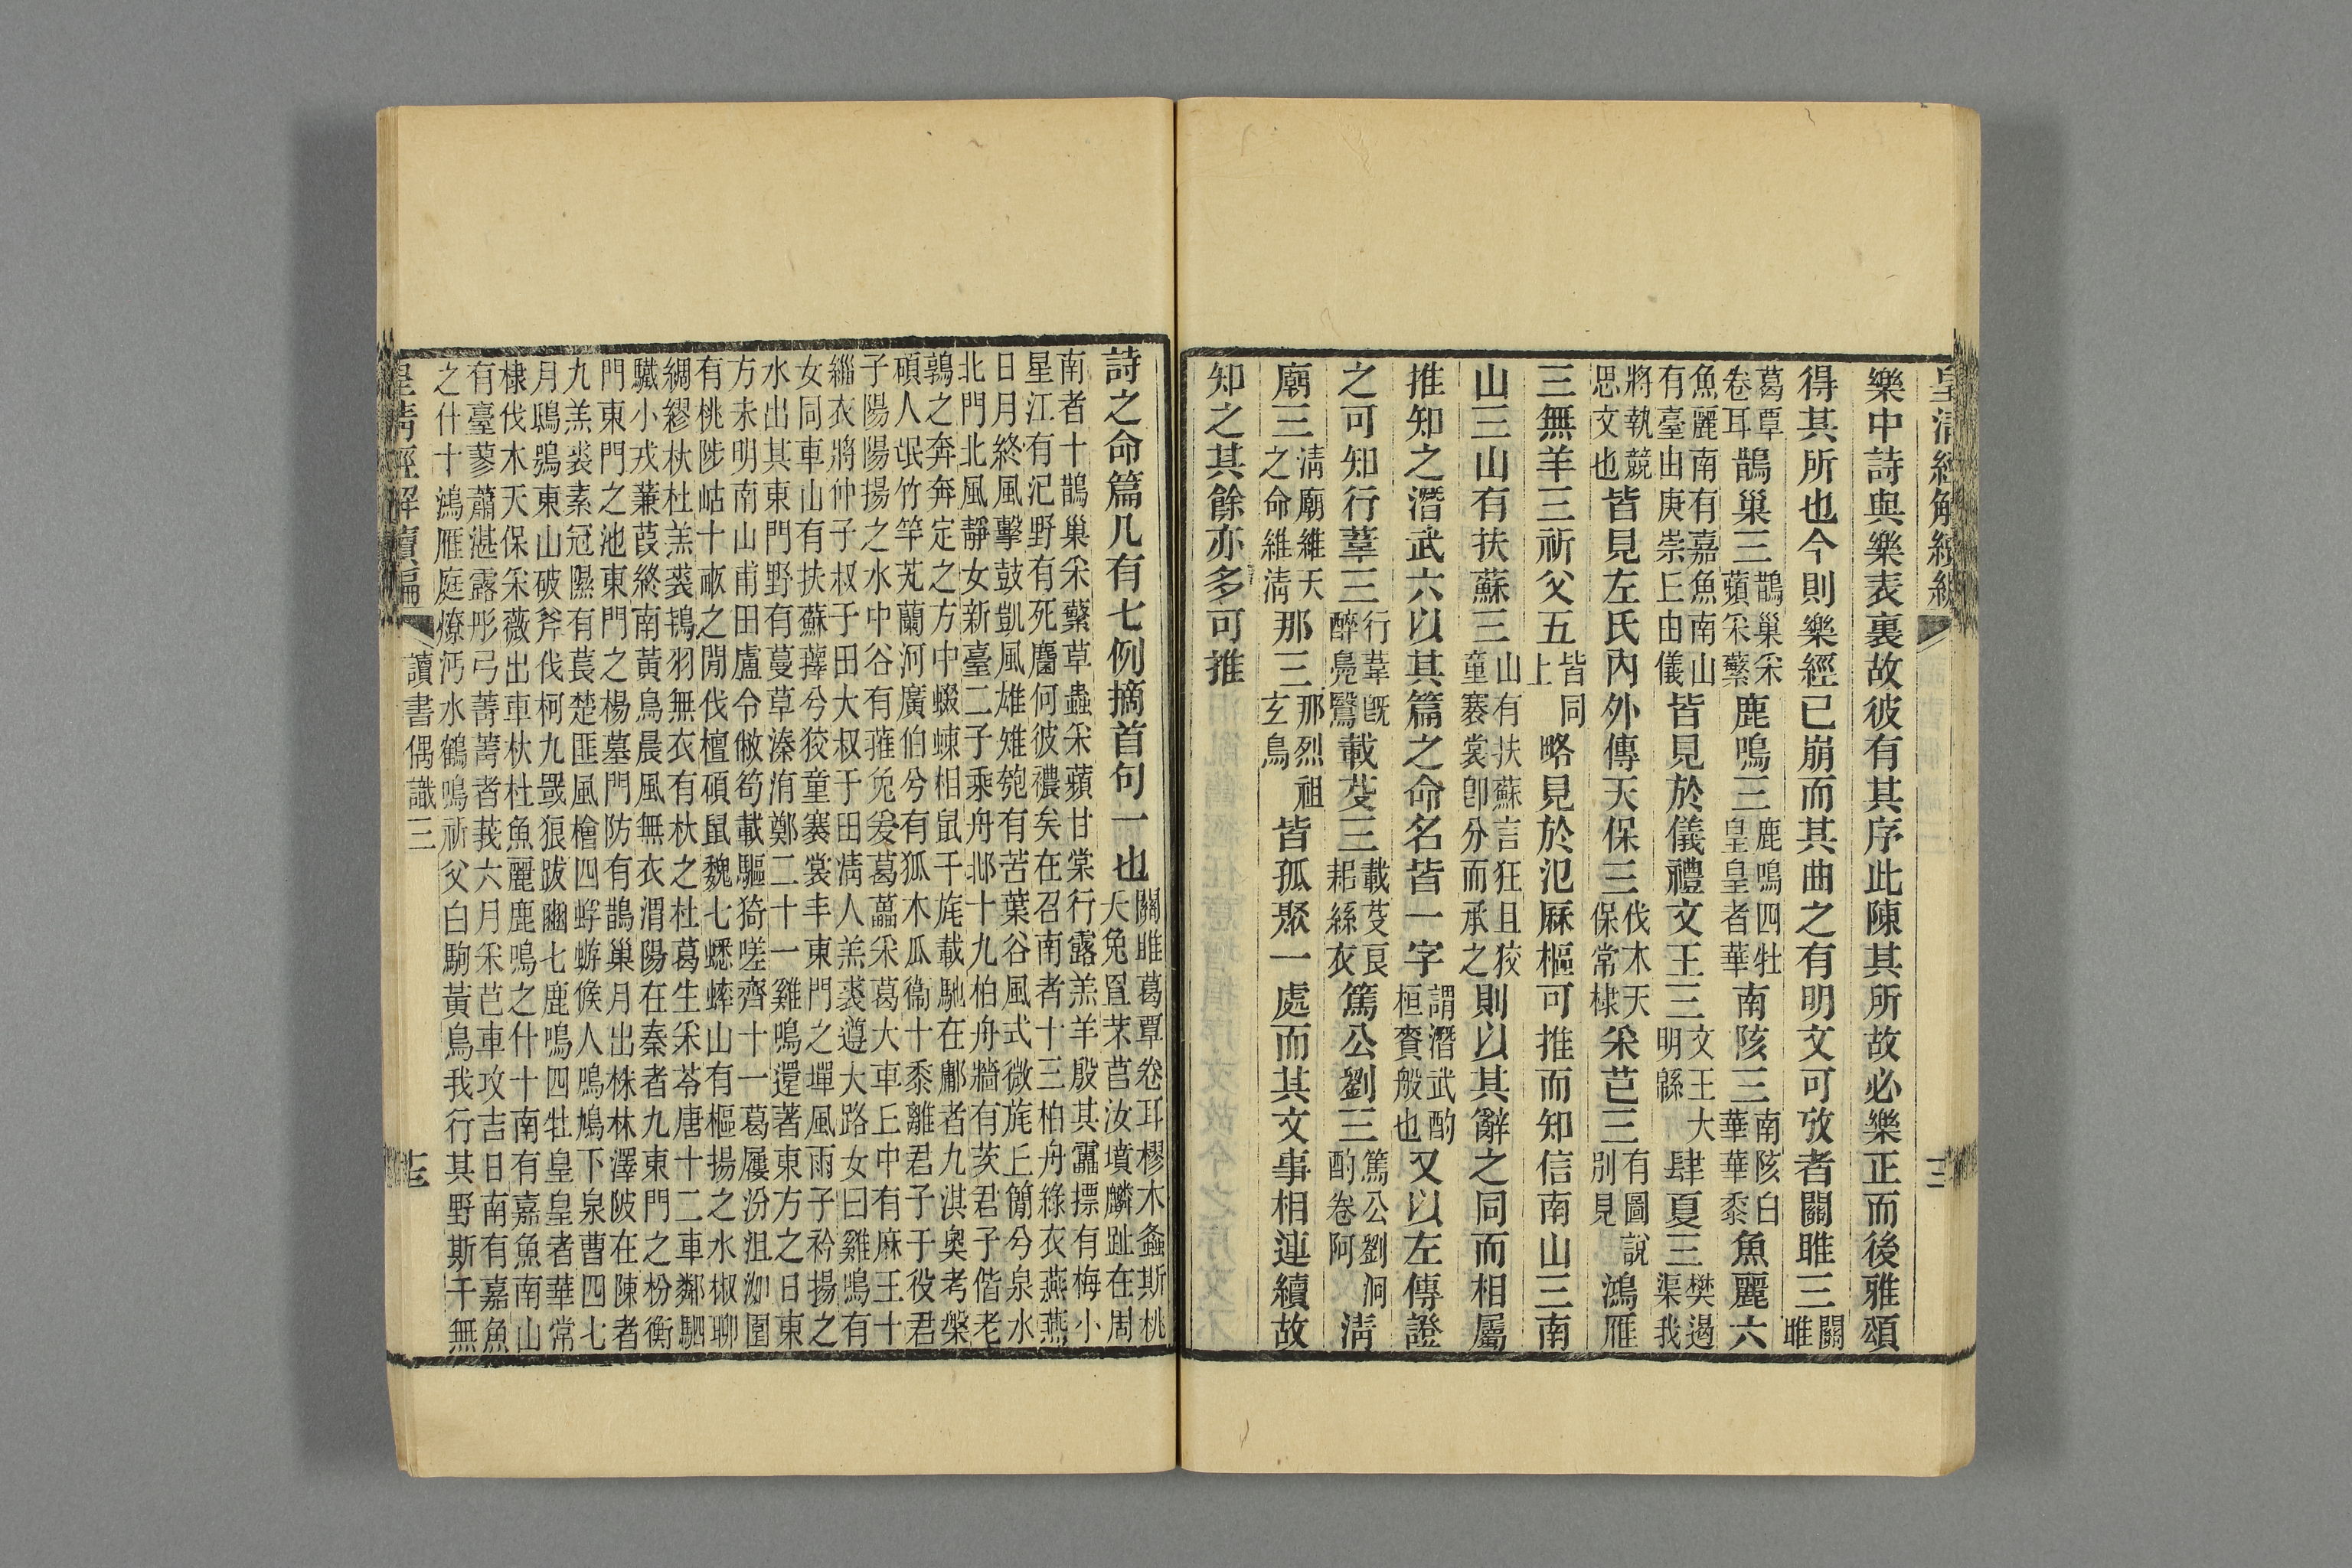 皇清經解續編　十二
樂中詩與樂表裏故彼有其序此陳其所故必樂正而後雅頌
得其所也今則樂經已崩而其曲之有明文可攷者關雎三關雎
葛覃卷耳鵲巢三鵲巢采蘋采蘩鹿鳴三鹿鳴四牡皇皇者華南陔三南陔白華華黍魚麗六
魚麗南有嘉魚南山有臺由庚崇丘由儀皆見於儀禮文王三文王大明緜肆夏三樊遏渠我
將執競思文也皆見左氏內外傳天保三伐木天保常棣采芑三有圖說別見鴻雁
三無羊三祈父五皆同上略見於氾厤樞可推而知信南山三南
山三山有扶蘇三山有扶蘇言狂且狡童褰裳卽分而承之則以其辭之同而相屬
推知之潛武六以其篇之命名皆一字謂潛武酌桓賚般也又以左傳證
之可知行葦三行葦旣醉鳧鷖載芟三載芟良耜絲衣篤公劉三篤公劉泂酌卷阿清
廟三清廟維天之命維清那三那烈祖玄鳥皆孤聚一處而其文事相連續故
知之其餘亦多可推
詩之命篇凡有七例摘首句一也關雎葛覃卷耳樛木螽斯桃夭兔罝芣苢汝墳麟趾在周
南者十鵲巢采蘩草蟲采蘋甘棠行露羔羊殷其靁摽有梅小
星江有汜野有死麕何彼襛矣在召南者十三柏舟綠衣燕燕
日月終風擊鼓凱風雄雉匏有苦葉谷風式微旄丘簡兮泉水
北門北風靜女新臺二子乘舟邶十九柏舟牆有茨君子偕老
鶉之奔奔定之方中蝃蝀相鼠干旄載馳在鄘者九淇奧考槃
碩人氓竹竿芄蘭河廣伯兮有狐木瓜衞十黍離君子于役君
子陽陽揚之水中谷有蓷兔爰葛藟采葛大車丘中有麻王十
緇衣將仲子叔于田大叔于田清人羔裘遵大路女曰雞鳴有
女同車山有扶蘇蘀兮狡童褰裳丰東門之墠風雨子衿揚之
水出其東門野有蔓草溱洧鄭二十一雞鳴還著東方之日東
方未明南山甫田盧令敝笱載驅猗嗟齊十一葛屨汾沮洳園
有桃陟岵十畝之閒伐檀碩鼠魏七蟋蟀山有樞揚之水椒聊
綢繆杕杜羔裘鴇羽無衣有杕之杜葛生采苓唐十二車鄰駟
驖小戎蒹葭終南黃鳥晨風無衣渭陽在秦者九東門之枌衡
門東門之池東門之楊墓門防有鵲巢月出株林澤陂在陳者
九羔裘素冠隰有萇楚匪風檜四蜉蝣候人鳲鳩下泉曹四七
月鴟鴞東山破斧伐柯九罭狼跋豳七鹿鳴四牡皇皇者華常
棣伐木天保采薇出車杕杜魚麗鹿鳴之什十南有嘉魚南山
有臺蓼蕭湛露彤弓菁菁者莪六月采芑車攻吉日南有嘉魚
之什十鴻雁庭燎沔水鶴鳴祈父白駒黃鳥我行其野斯干無
皇清經解續編　讀書偶識三　十三